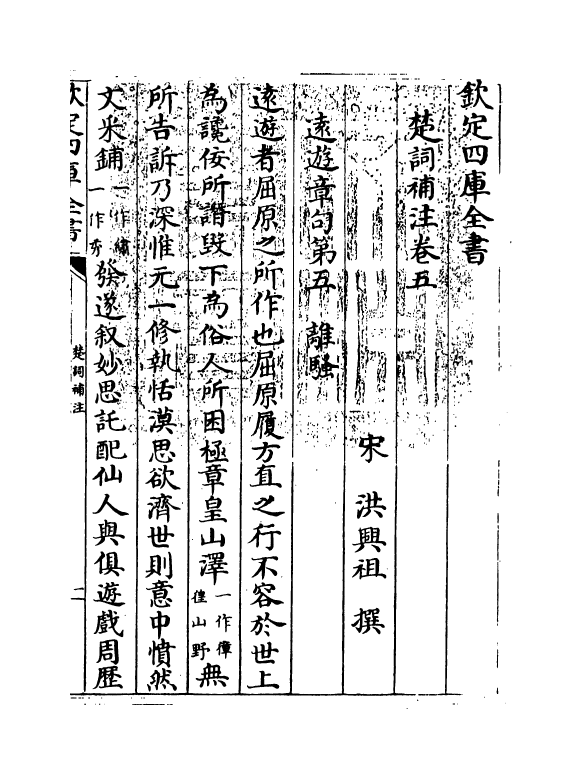 欽定四庫全書
楚詞補注卷五
宋 洪興祖 撰
遠遊章句第五 離騷
遠遊者屈原之所作也屈原履方直之行不容於世上
為讒佞所譖毀下為俗人所困極章皇山澤一作傽偟山野無
所告訴乃深惟元一修執恬漠思欲濟世則意中憤然
文采鋪一作繡一作秀發遂叙妙思託配仙人與俱遊戲周歷
欽定四庫全書
楚詞補注